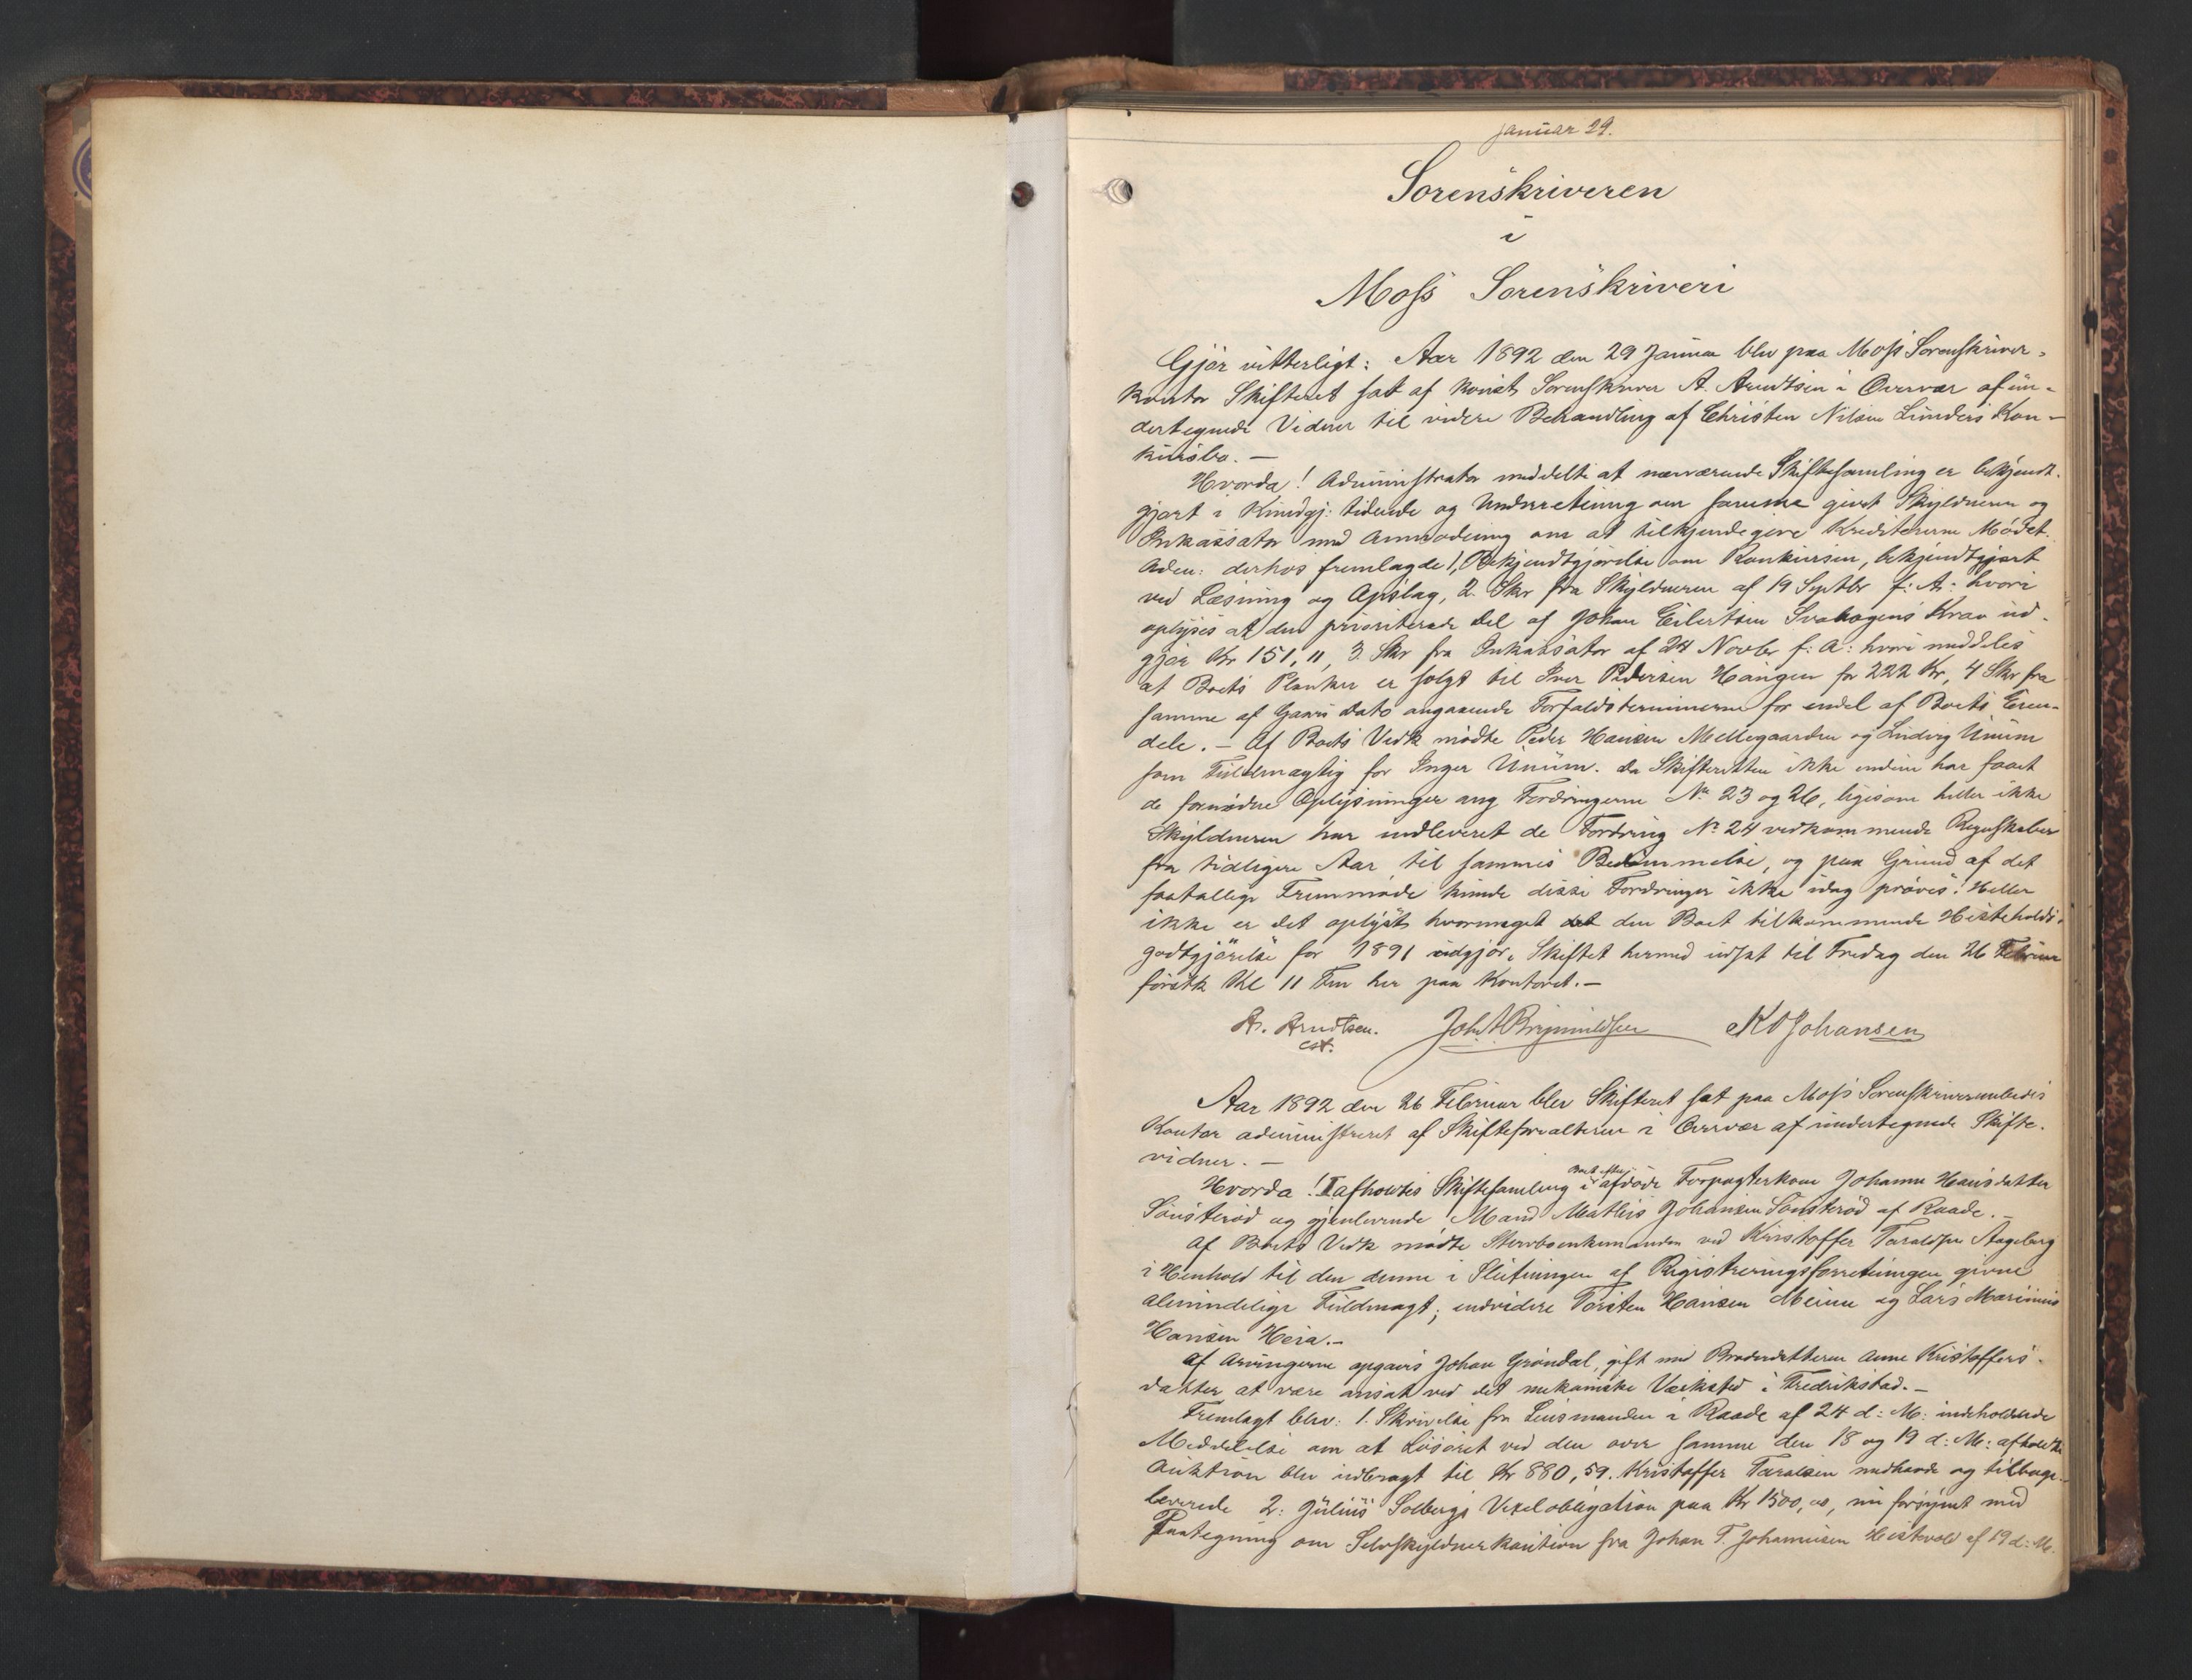 Januar 29.
Sorenskriveren
i
Moss Sorenskriveri
Gjør vitterligt: Aar 1892 den 29 Januar blev paa Moss Sorenskriver-
kontor Skifteret sat af konst Sorenskriver A. Arndtsen i Overvær af un-
dertegnede Vidner til videre Behandling af Christen Nilsen Lunders Kon-
kursbo. —
Hvorda! Administrator meddelte at nærværende Skiftesamling er bekjendt-
gjort i Kundgj: tidende og Underretning om samme givet Skyldneren og
Inkassator med Anmodning om at tilkjendegive Kreditorerne Mødet.
Aden: derhos fremlagde 1, Bekjendtgjørelse om Konkursen, bekjendtgjort
ved Læsning og Opslag, 2. Skr fra Skyldneren af 19 Septbr f: A: hvori
oplyses at den prioriterede Del af Johan Eilertsen Svahogens Krav ud-
gjør Kr 151,11, 3. Skr fra Inkassator af 24 Novbr f: A: hvori meddeles
at Boets Planker er solgt til Iver Pedersen Haugen for 222 Kr, 4 Skr fra
samme af Gaars Dato angaaende Forfaldsterminerne for endel af Boets Eien-
dele. — Af Boets Vedk mødte Peder Hansen Mellegaarden og Ludvig Unum
som Fuldmægtig for Inger Unum. Da Skifteretten ikke endnu har faaet
de fornødne Oplysninger ang Fordringerne No 23 og 26, ligesom heller ikke
Skyldneren har indleveret de Fordring No 24 vedkommende Regnskaber
fra tidligere Aar til sammes Bedømmelse, og paa Grund af det
faatallige Fremmøde kunde disse Fordringer ikke idag prøves. Heller
ikke er det oplyst hvormeget det den Boet tilkommende Hesteholds-
godtgjørelse for 1891 udgjør. Skiftet hermed udsat til Fredag den 26 Februar
førstk Kl 11 Fm her paa Kontoret. —
A. Arndtsen. Joh. A. Brynildsen K O Johansen
cst.
Aar 1892 den 26 Februar blev Skifteret sat paa Moss Sorenskriverembedes
Kontor administreret af Skifteforvalteren i Overvær af undertegnede Skifte-
vidner. —
Hvorda! afholdtes Skiftesamling i Boet efter afdøde Forpagterkone Johanne Hansdatter
Sønsterød og gjenlevende Mand Mathis Johansen Sønsterød af Raade. —
Af Boets Vedk mødte Stervboenkemanden ved Kristoffer Taraldsen Aageberg
i Henhold til den denne i Slutningen af Registreringsforretningen givne
alemindelige Fuldmagt; endvidere Torsten Hansen Meum og Lars Marinius
Hansen Heia. —
Af Arvingerne opgaves Johan Grøndal, gift med Broderdatteren Anne Kristoffers-
datter at være ansat ved det mekaniske Værksted i Fredrikstad. —
Fremlagt blev: 1. Skrivelse fra Lensmanden i Raade af 24 d: M: indeholdende
Meddelelse om at Løsøret ved den over samme den 18 og 19 d: M: afholdte
Auktion blev udbragt til Kr 880,59. Kristoffer Taralsen medhavde og tilbage-
leverede 2: Julius Solbergs Vexelobligation paa Kr 1500,00, nu forsynet med
Paategning om Selvskyldnerkaution fra Johan T. Johannesen Hestvold af 19 d: M.